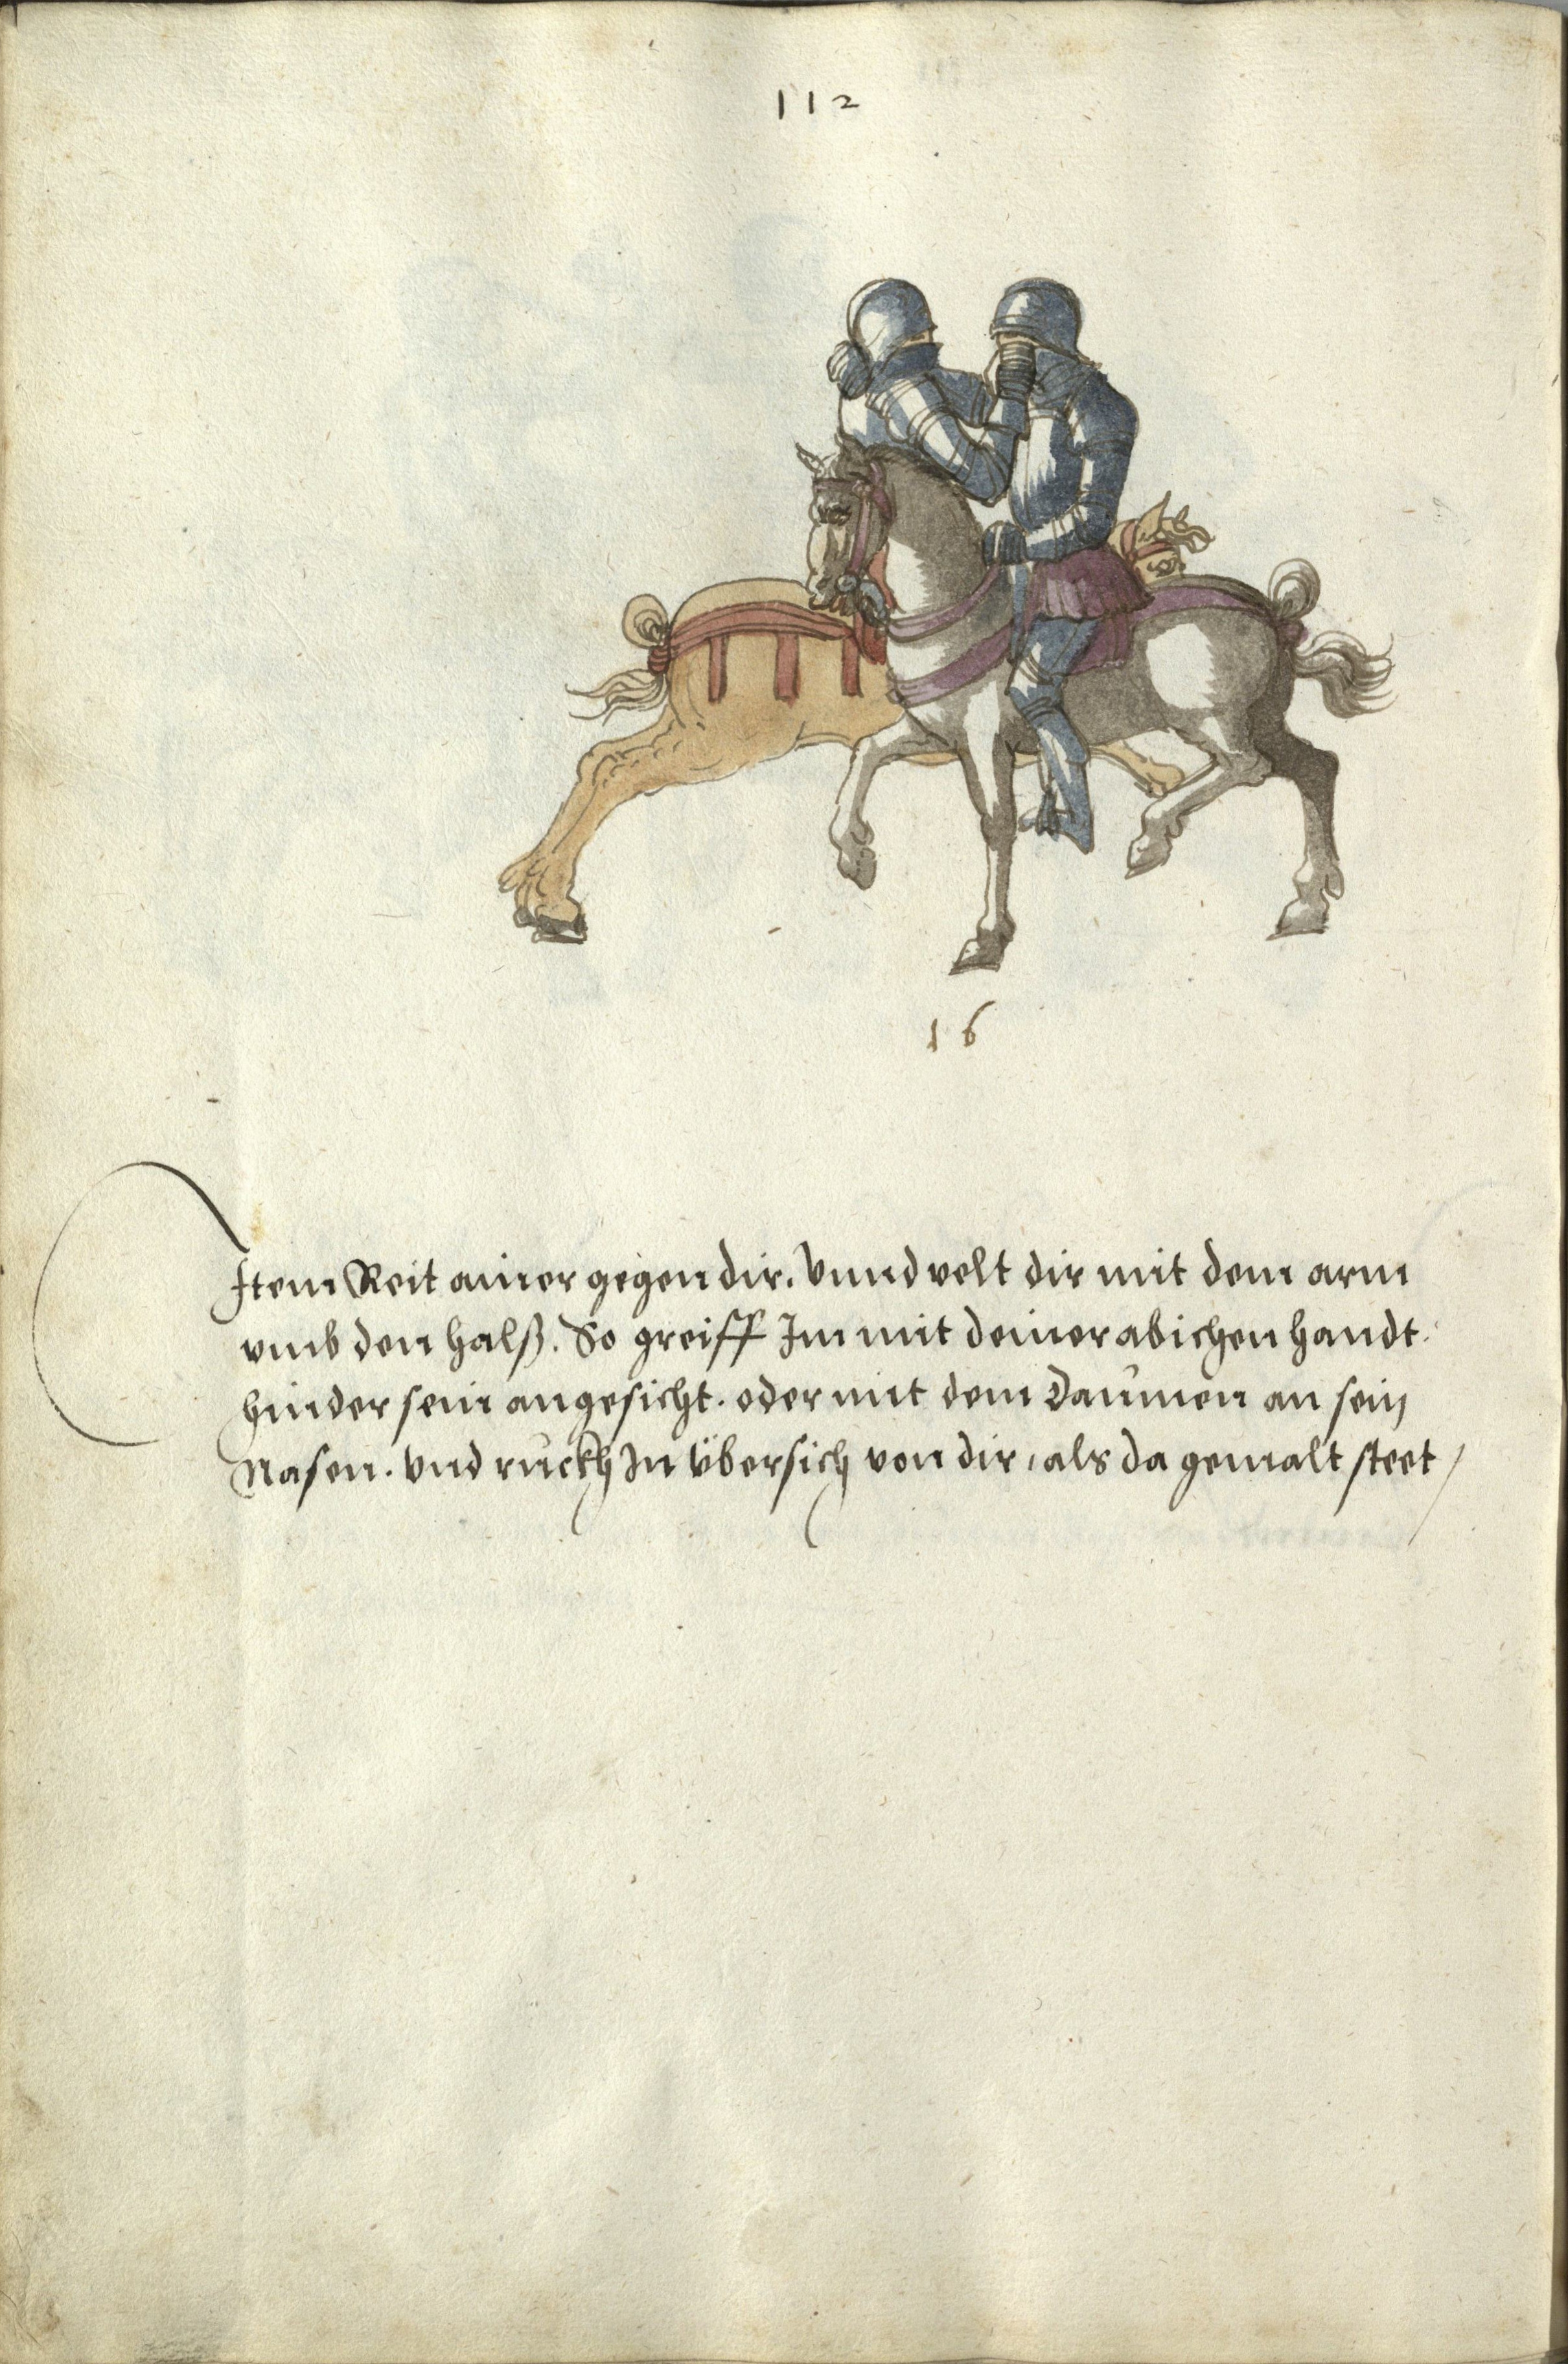 112
16
Item Reit ainer gegen dir. Vnnd velt dir mit dem arm
vmb den halß. So greiff Im mit deiner abichen handt.
hinder sein angesicht. oder mit dem Daumen an sein
Nasen. vnd ruckh In übersich von dir, als da gemalt steet /